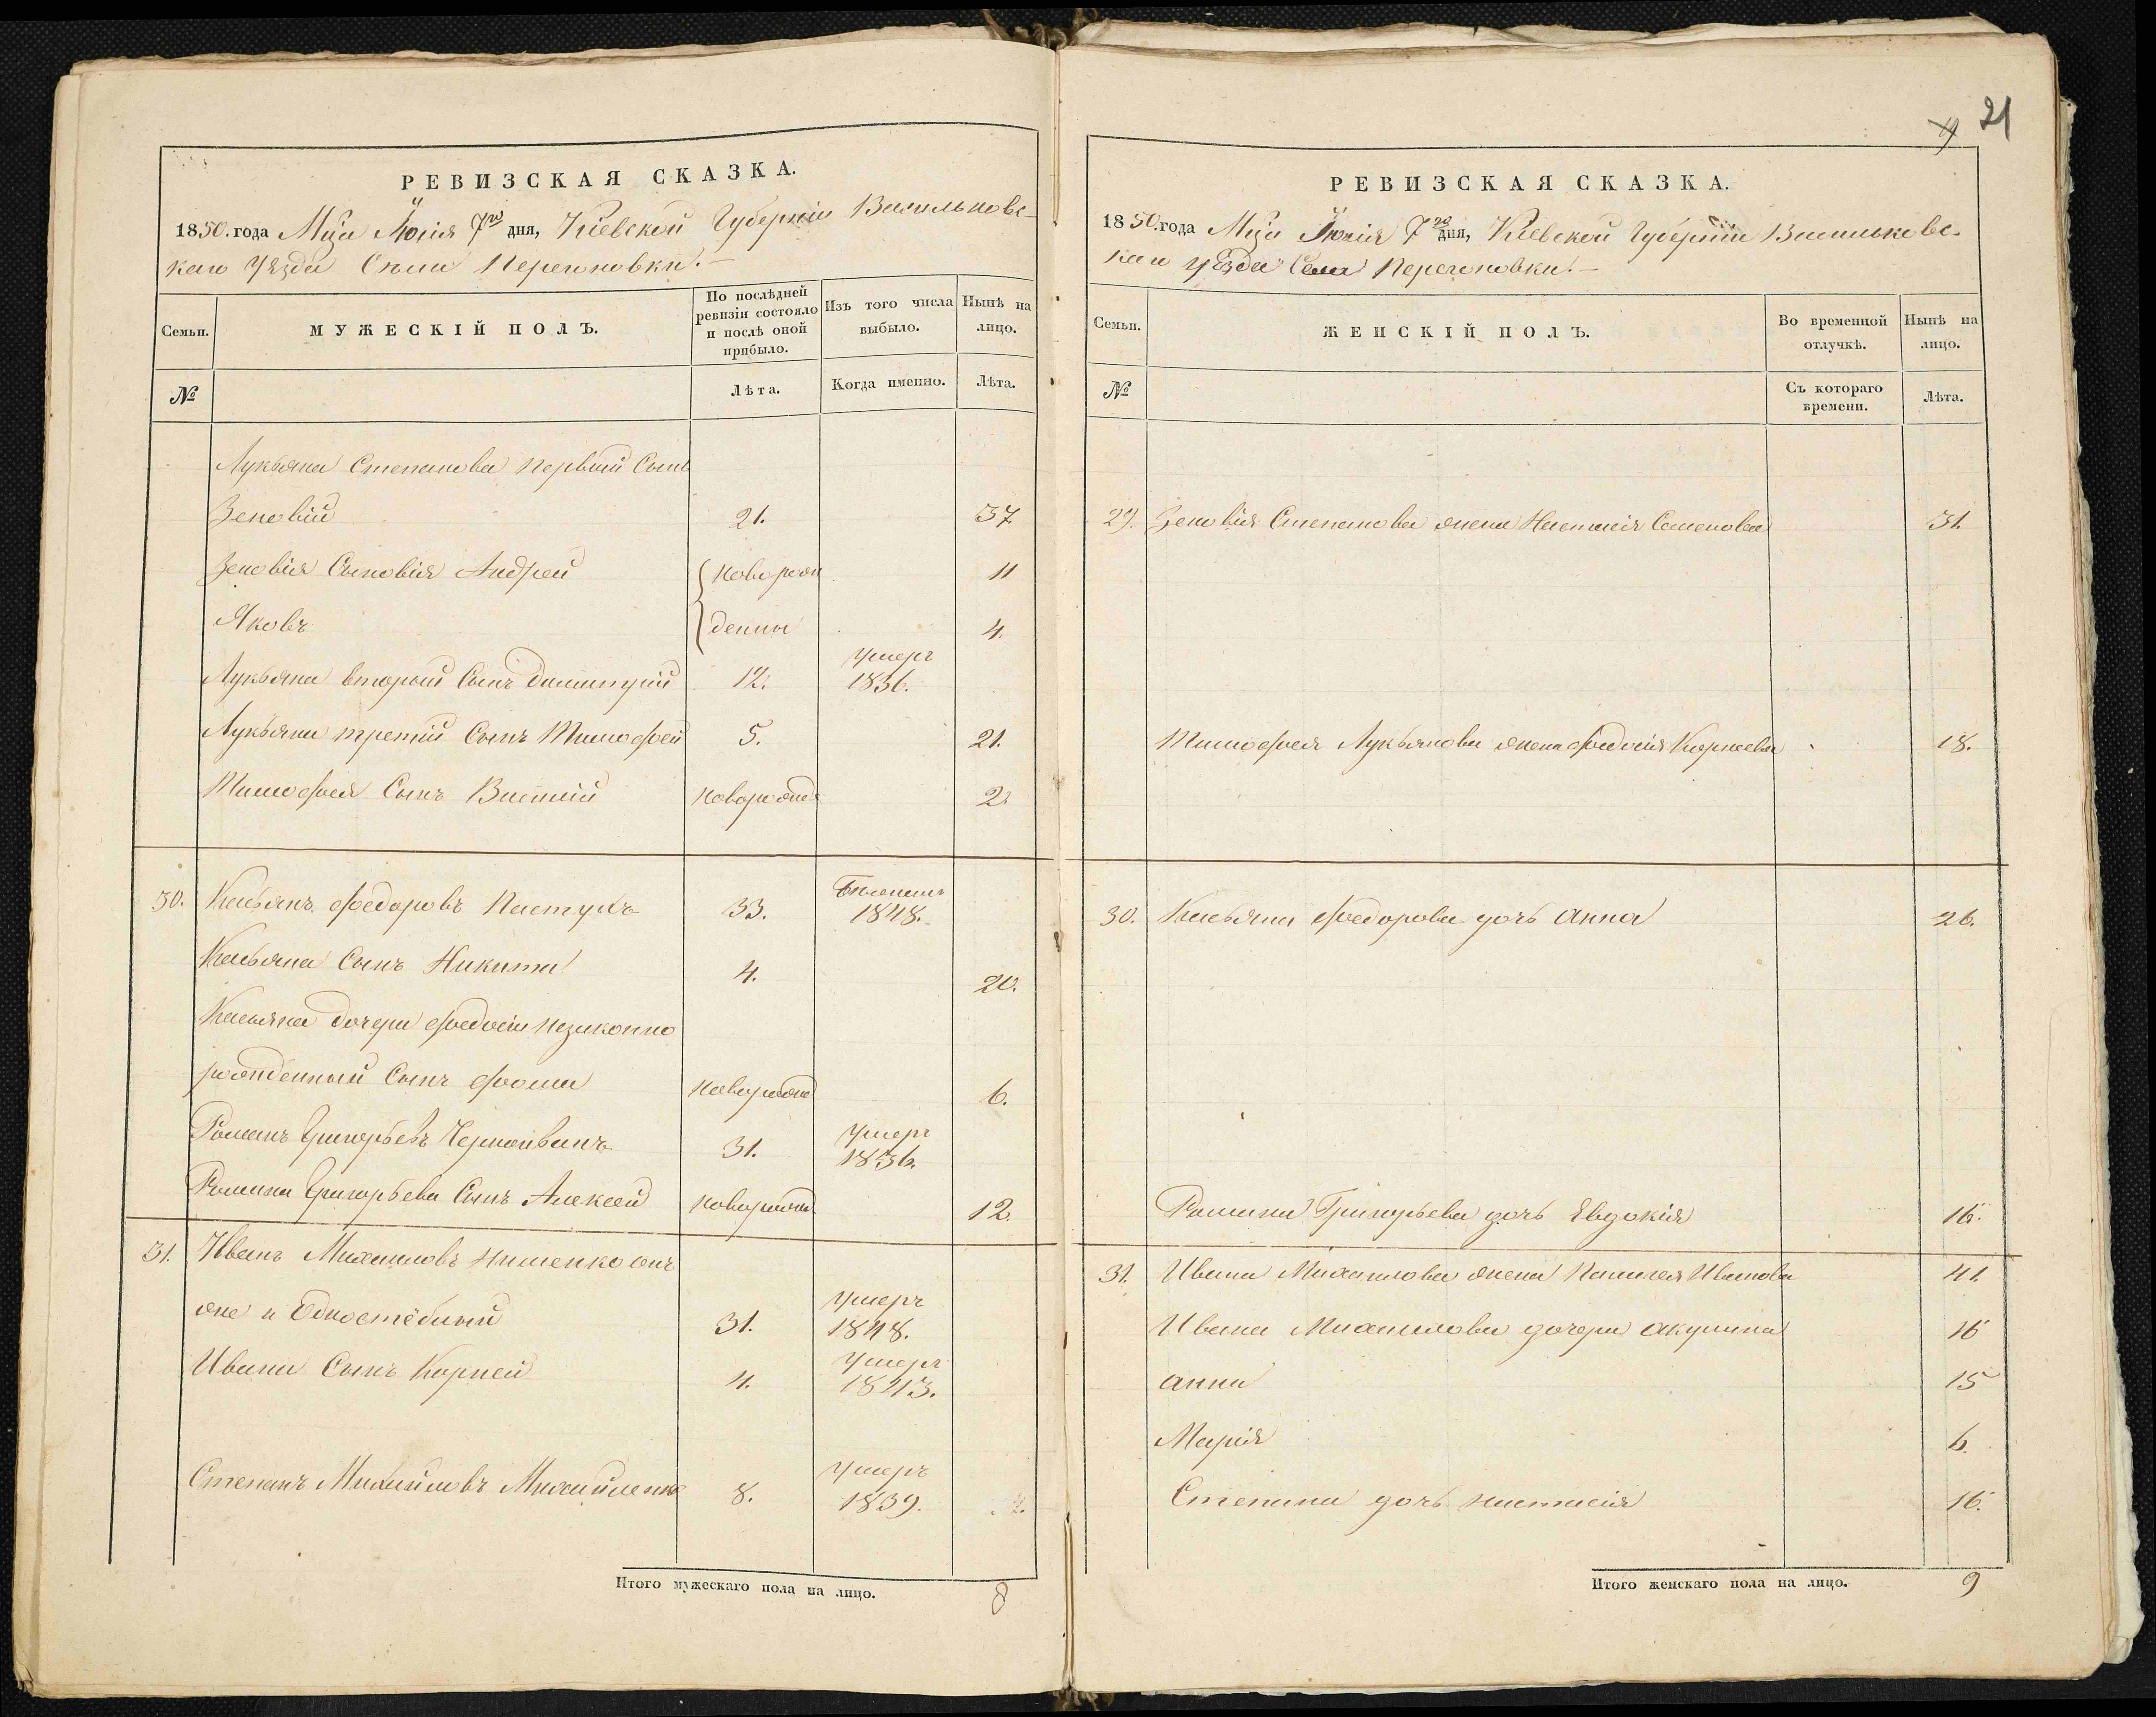 РЕВИЗСКАЯ СКАЗКА.
1850. года Мца Іюлія 7го дня, Кіевской Губерніи Васильковс-
каго Уѣзда Села Перегоновки.
Семьи.
МУЖЕСКІЙ ПОЛЪ.
По послѣдней ревизіи состояло и послѣ оной прибыло.
Изъ того числа выбыло.
Нынѣ на лицо.
№
Лѣта.
Когда именно.
Лѣта.
Лукьяна Степанова первый Сынъ
Зеновій 21. 37
Зеновія Сыновія Андрей новорож 11
Яковъ денны 4.
Лукьяна вторый Сынъ Димитрій 12. Умеръ 1836.
Лукьяна третій Сынъ Тимофей 5. 21.
Тимофея Сынъ Василій новорожд 2
30. Касьянъ Федоровъ Пастухъ 33. 1848.
Касьяна Сынъ Никита 4. 20.
Касьяна дочери Федосіи незаконно
рожденный Сынъ Фома новорожд 6.
Романъ Григорьевъ 31. Умеръ 1836.
Романа Григорьева Сынъ Алексей новорожд 12.
31. Иванъ Михаиловъ онъ
же и 31. Умеръ 1848.
Ивана Сынъ Корней 4. Умеръ 1843.
Степанъ Михайловъ Михайленко 8. Умеръ 1839.
Итого мужескаго пола на лицо. 8
21
РЕВИЗСКАЯ СКАЗКА.
1850. года Мца Іюлія 7го дня, Кіевской Губерніи Васильковс-
каго уѣзда Села Перегоновки.
Семьи.
ЖЕНСКІЙ ПОЛЪ.
Во временной отлучкѣ.
Нынѣ на лицо.
№
Съ котораго времени.
Лѣта.
29. Зеновія Степанова жена Настасія Семенова 31.
Тимофея Лукьянова жена Федосія Корнеева 18.
30. Касьяна Федорова дочь Анна 26.
Романа Григорьева дочь Евдокія 16.
31. Ивана Михаилова жена Пелагея Иванова 41.
Ивана Михаилова дочери Акулина 16
Анна 15
Марія 6.
Степана дочь Настасія 16.
Итого женскаго пола на лицо. 9